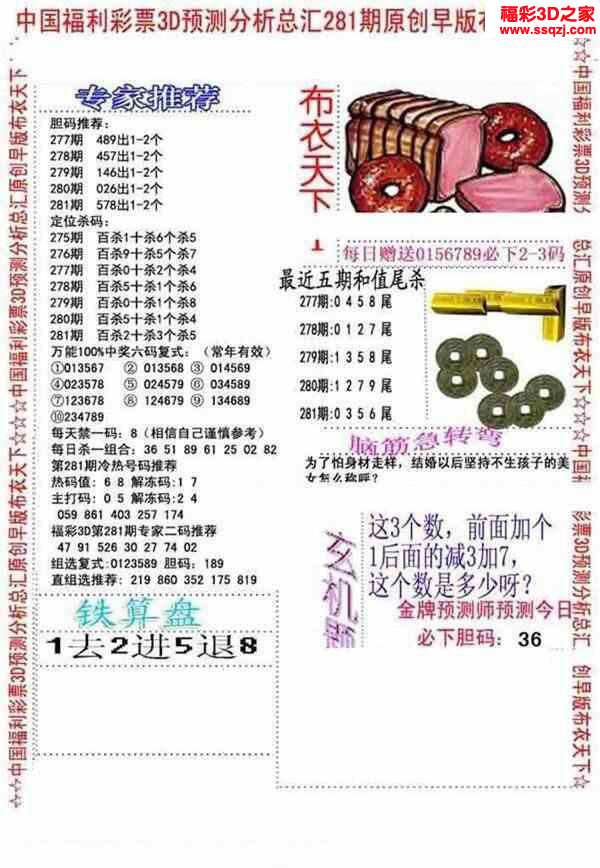 中国福利彩票3D预测分析总汇281期原创早版布
福彩3D之家
www.ssqzj.com
专家推荐
胆码推荐：
277期 489出1-2个
278期 457出1-2个
279期 146出1-2个
280期 026出1-2个
281期 578出1-2个
定位杀码：
275期 百杀1十杀6个杀5
276期 百杀9十杀5个杀7
277期 百杀0十杀2个杀4
278期 百杀6十杀1个杀6
279期 百杀0十杀1个杀8
280期 百杀5十杀1个杀4
281期 百杀2十杀3个杀5
万能100%中奖六码复式：（常年有效）
①013567 ② 013568 ③ 014569
④023578 ⑤ 024579 ⑥ 034589
⑦123678 ⑧ 124679 ⑨ 134689
⑩234789
每天禁一码：8（相信自己谨慎参考）
每日杀一组合：36 51 89 61 25 02 82
第281期冷热号码推荐
热码值：6 8 解冻码：1 7
主打码：0 5 解冻码：2 4
059 861 403 257 174
福彩3D第281期专家二码推荐
47 91 526 30 27 74 02
组选复式：0123589 胆码：189
直组选推荐：219 860 352 175 819
铁算盘
1去2进5退8
布衣天下
每日赠送0156789必下2-3码
最近五期和值尾杀
277期：0 4 5 8 尾
278期：0 1 2 7 尾
279期：1 3 5 8 尾
280期：1 2 7 9 尾
281期：0 3 5 6 尾
脑筋急转弯
为了怕身材走样，结婚以后坚持不生孩子的美
女怎么称呼？
玄机
这3个数，前面加个
1后面的减3加7，
这个数是多少呀？
金牌预测师预测今日
必下胆码： 36
☆☆中国福利彩票3D预测分析总汇原创早版布衣天下☆☆☆中国福利彩票3D预测分析总汇原创早版布衣天下
☆☆中国福利彩票3D预测分
总汇原创早版布衣天下☆☆☆中国福
彩票3D预测分析总汇
创早版布衣天下☆